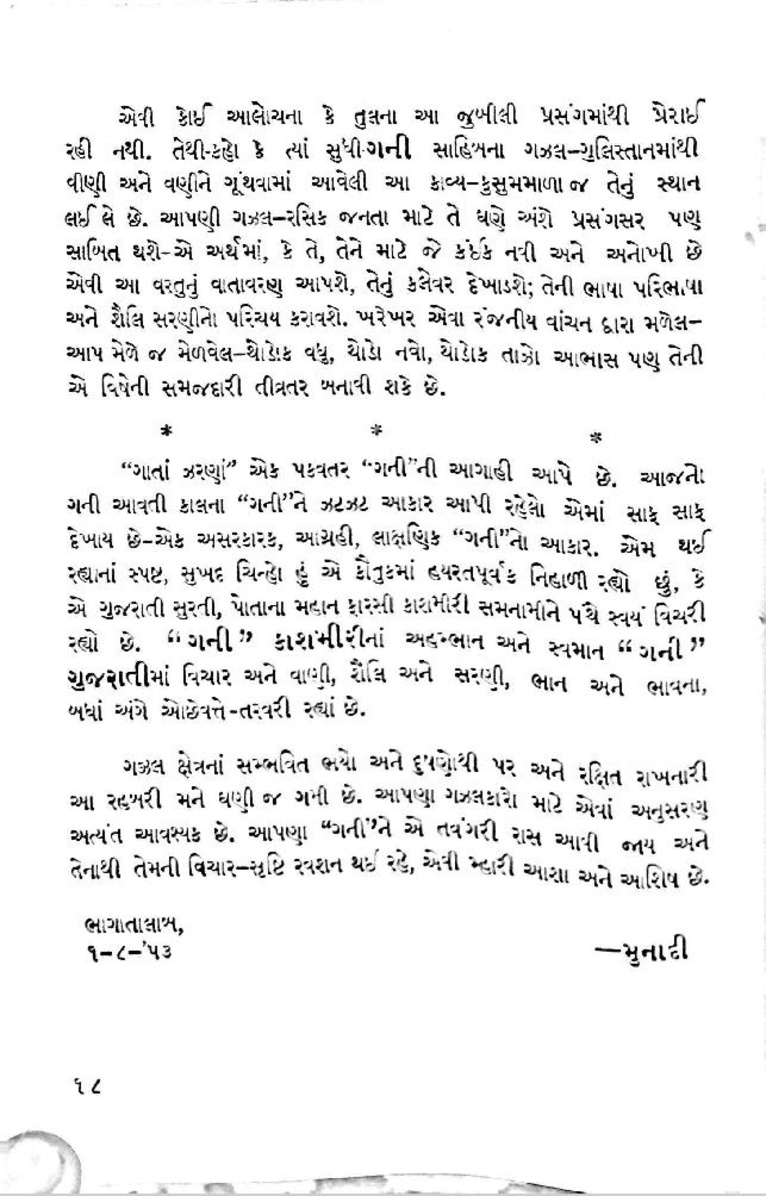 એવી કોઈ આલોચના કે તુલના આ જુબીલી પ્રસંગમાંથી પ્રેરાઈ
રહી નથી. તેથી-કહો કે ત્યાં સુધી-ગની સાહિબના ગઝલ-ગુલિસ્તાનમાંથી
વીણી અને વણીને ગૂંથવામાં આવેલી આ કાવ્ય-કુસુમમાળા જ તેનું સ્થાન
લઈ લે છે. આપણી ગઝલ-રસિક જનતા માટે તે ઘણે અંશે પ્રસંગસર પણ
સાબિત થશે-એ અર્થમાં, કે તે, તેને માટે જે કંઈક નવી અને અનોખી છે
એવી આ વસ્તુનું વાતાવરણ આપશે, તેનું કલેવર દેખાડશે; તેની ભાષા પરિભાષા
અને શૈલિ સરણીનો પરિચય કરાવશે. ખરેખર એવા રંજનીય વાંચન દ્વારા મળેલ-
આપ મેળે જ મેળવેલ-થોડોક વધુ, થોડો નવો, થોડોક તાઝો આભાસ પણ તેની
એ વિષેની સમજદારી તીવ્રતર બનાવી શકે છે.
* * *
“ગાતાં ઝરણાં” એક પકવતર “ગની”ની આગાહી આપે છે. આજનો
ગની આવતી કાલના “ગની”ને ઝટઝટ આકાર આપી રહેલો એમાં સાફ સાફ
દેખાય છે-એક અસરકારક, આગ્રહી, લાક્ષણિક “ગની”નો આકાર. એમ થઈ
રહ્યાનાં સ્પષ્ટ, સુખદ ચિન્હો હું એ કૌતુકમાં હયરતપૂર્વક નિહાળી રહ્યો છું, કે
એ ગુજરાતી સુરતી, પોતાના મહાન ફારસી કાશમીરી સમનામીને પંથે સ્વયં વિચરી
રહ્યો છે. “ગની” કાશમીરીનાં અહમ્ભાન અને સ્વમાન “ગની”
ગુજરાતીમાં વિચાર અને વાણી, શૈલિ અને સરણી, ભાન અને ભાવના,
બધાં અંગે ઓછેવત્તે-તરવરી રહ્યાં છે.
ગઝલ ક્ષેત્રનાં સમ્ભવિત ભયો અને દુષણોથી પર અને રક્ષિત રાખનારી
આ રહબરી મને ઘણી જ ગમી છે. આપણા ગઝલકારો માટે એવાં અનુસરણ
અત્યંત આવશ્યક છે. આપણા “ગની”ને એ તવંગરી રાસ આવી જાય અને
તેનાથી તેમની વિચાર-સૃષ્ટિ રવશન થઈ રહે, એવી મ્હારી આશા અને આશિષ છે.
ભાગાતાલાબ,
૧-૮-'૫૩
—મુનાદી
૧૮